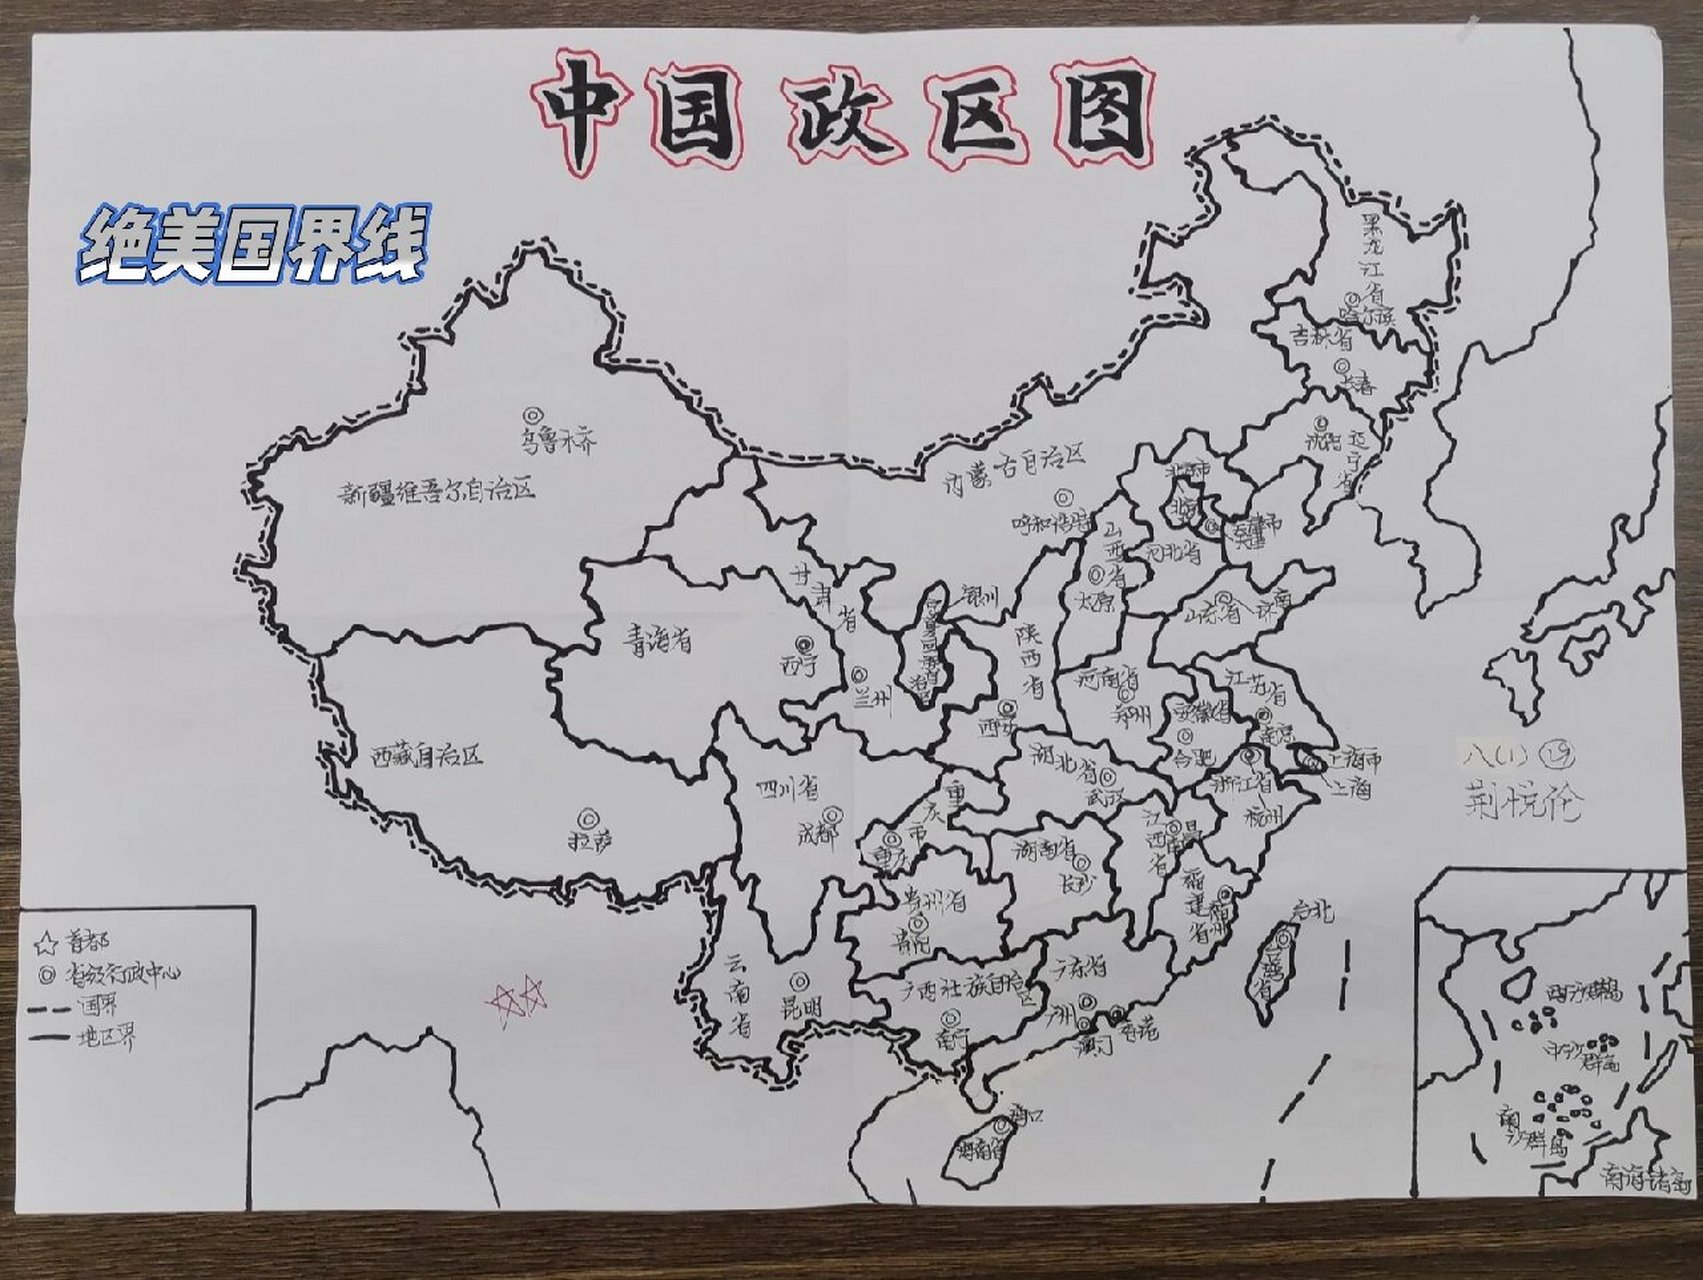 中国政区图
绝美国界线
黑龙江省
哈尔滨
吉林省
长春
沈阳
辽宁省
乌鲁木齐
新疆维吾尔自治区
内蒙古自治区
呼和浩特
北京市
北京
天津市
天津
河北省
山西省
太原
山东省
济南
甘肃省
兰州
银川
宁夏回族自治区
陕西省
西安
青海省
西宁
河南省
郑州
江苏省
南京
安徽省
合肥
上海市
上海
西藏自治区
拉萨
四川省
成都
重庆市
重庆
湖北省
武汉
浙江省
杭州
湖南省
长沙
江西省
南昌
福建省
福州
贵州省
贵阳
云南省
昆明
广西壮族自治区
南宁
广东省
广州
澳门
香港
台北
台湾省
海口
海南省
八(1)
荆悦伦
首都
省级行政中心
国界
地区界
西沙群岛
中沙群岛
南沙群岛
南海诸岛